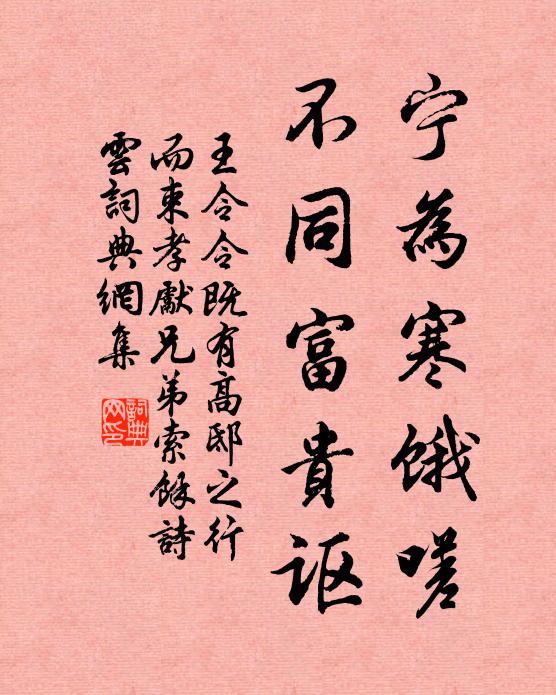 宁為寒餓嗟
不同富貴讴
王令令既有高邸之行
而東孝獻兄弟索餘詩
雲詞典網集
詞典
网印